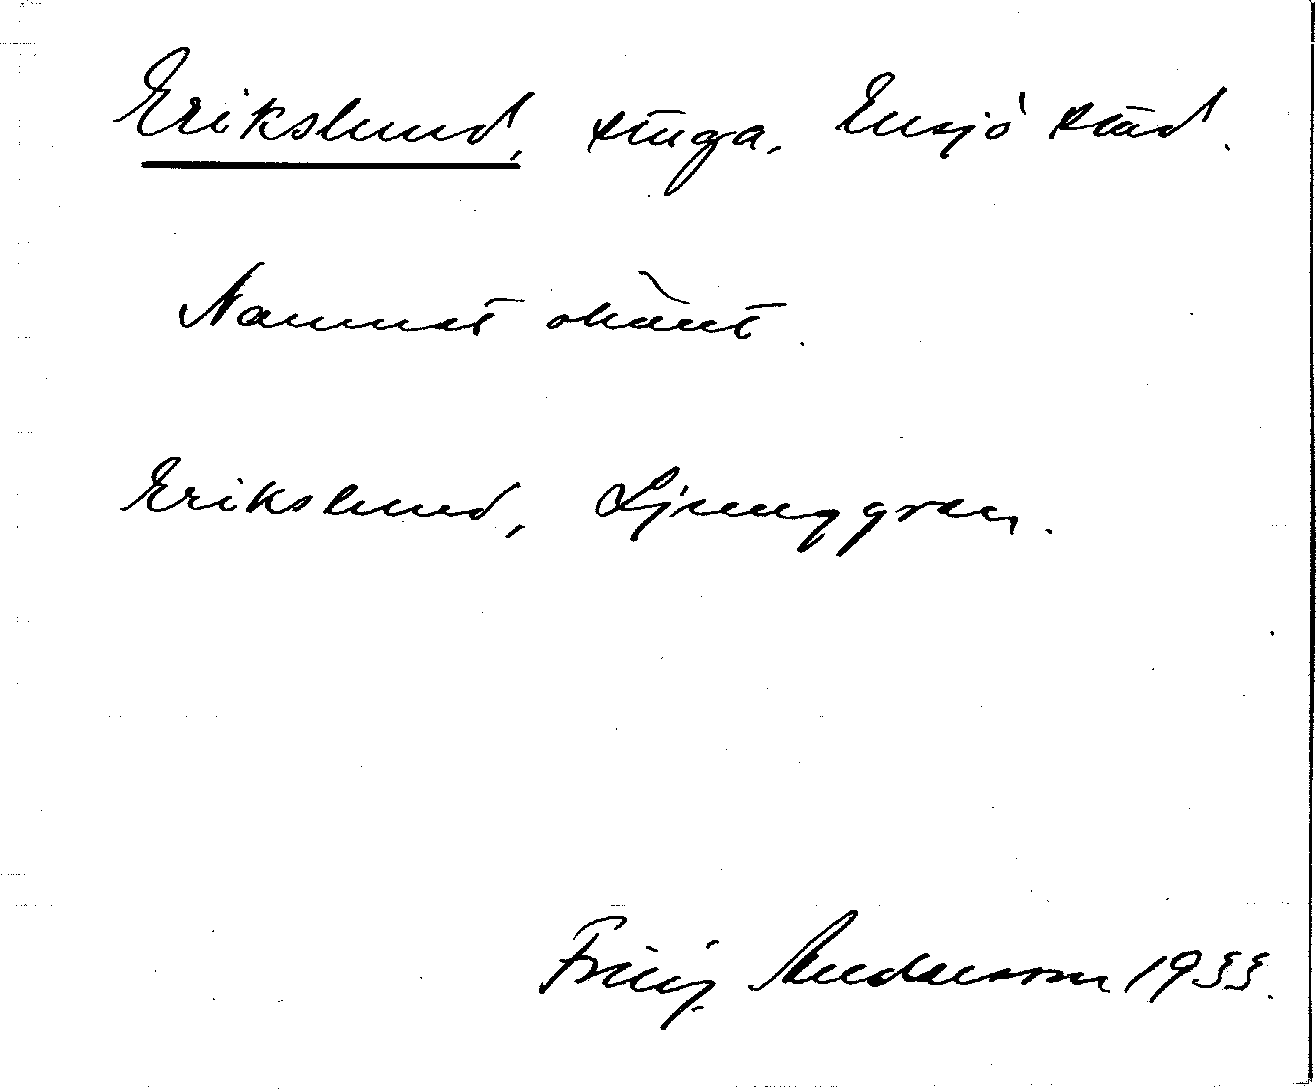 Erikslund, stuga, Eksjö stad.
Namnet okänt.
Erikslund, Ljunggren.
Andersson 1933.